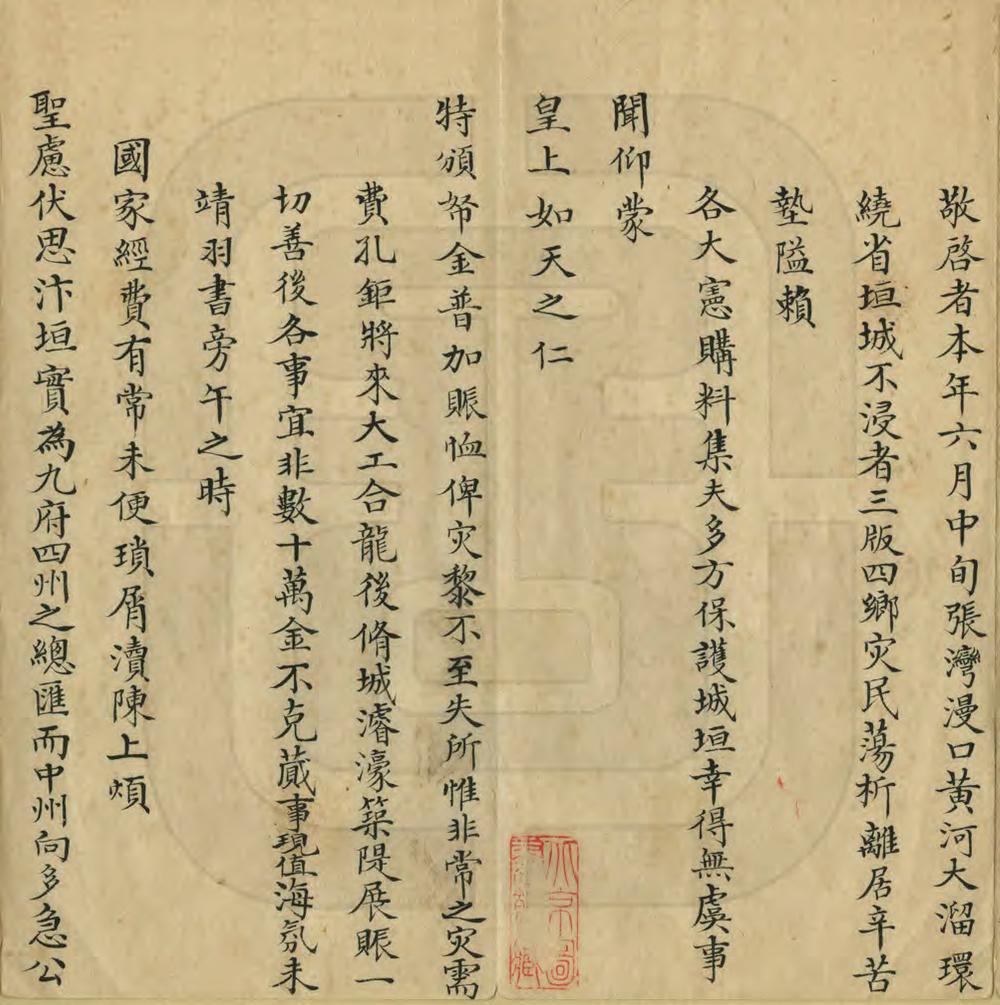 敬啓者本年六月中旬張灣漫口黃河大溜環
繞省垣城不浸者三版四鄉灾民蕩析離居辛苦
墊隘賴
各大憲購料集夫多方保護城垣幸得無虞事
聞仰蒙
皇上如天之仁
特頒帑金普加賑恤俾灾黎不至失所惟非常之灾需
費孔鉅將來大工合龍後脩城濬濠築隄展賑一
切善後各事宜非數十萬金不克蕆事現值海氛未
靖羽書旁午之時
國家經費有常未便瑣屑瀆陳上煩
聖慮伏思汴垣實為九府四州之總匯而中州向多急公